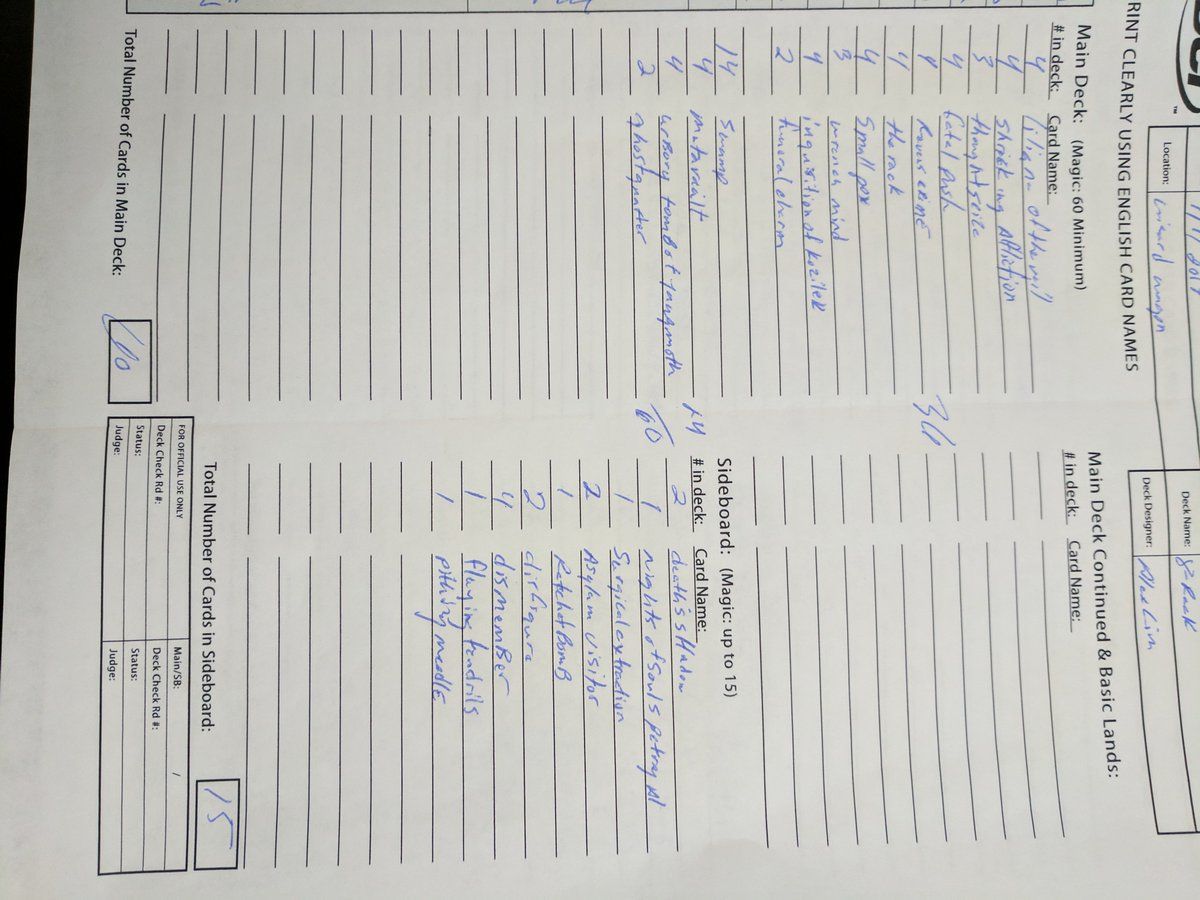 PRINT CLEARLY USING ENGLISH CARD NAMES
Location: wizard
Deck Name: 8 Rack
Deck Designer:
Main Deck: (Magic: 60 Minimum)
# in deck: Card Name:
4 liliana of the veil
4 shrieking Affliction
3 thoughtseize
4 fatal push
4
4 the rack
4 Smallpox
3 wrench mind
4 inquisition of kozilek
2 funeral charm
36
14 swamp
4 mutavault
4 urborg tomb of yawgmoth
2 ghost quarter
24
60
Total Number of Cards in Main Deck: 60
Main Deck Continued & Basic Lands:
# in deck: Card Name:
Sideboard: (Magic: up to 15)
# in deck: Card Name:
2 death's shadow
1 nights of souls betrayal
1 Surgical extraction
2 Asylum visitor
1 Ratchet Bomb
2 disfigure
4 dismember
1 flaying tendrils
1 pithing needle
Total Number of Cards in Sideboard: 15
FOR OFFICIAL USE ONLY
Deck Check Rd #:
Status:
Judge:
Main/SB: /
Deck Check Rd #:
Status:
Judge: